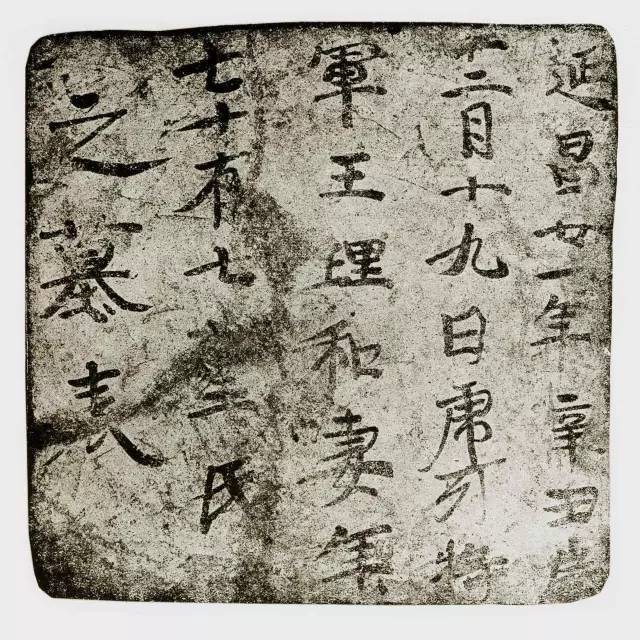 延昌廿一年辛丑歲
十二月十九日虎牙將
軍王理和妻年
七十有七氏
之墓表